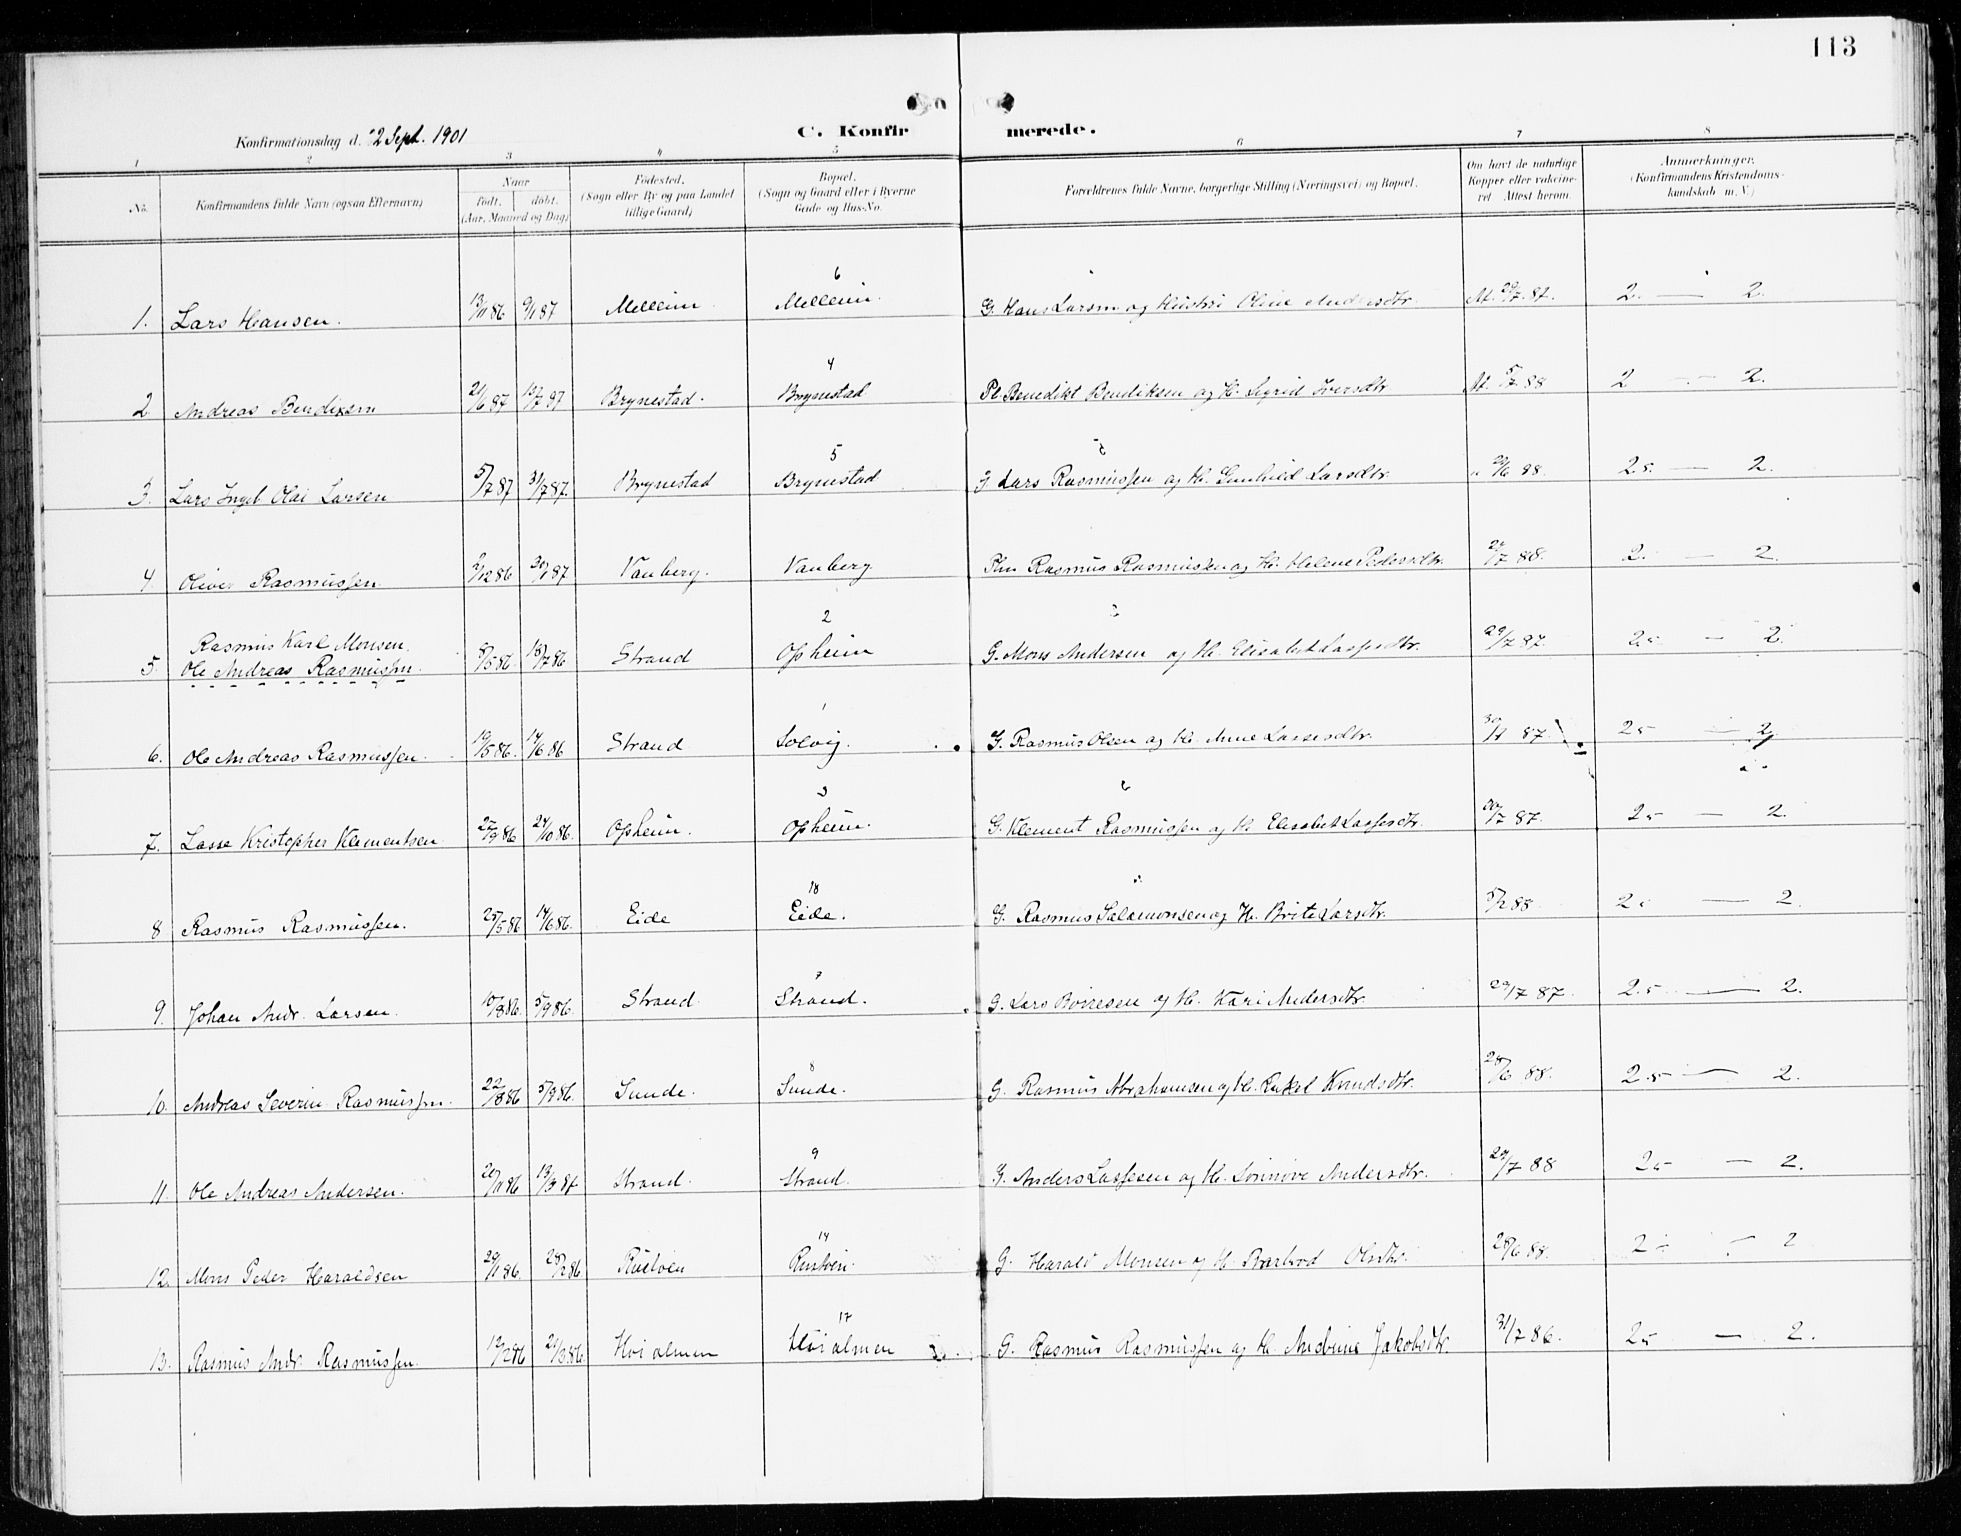 113
C. Konfirmerede.
Konfirmationsdag d. 2 Sept. 1901
1 2 3 4 5 6 7 8
No. Konfirmandens fulde Navn (ogsaa Efternavn) Naar født. døbt. (Aar, Maaned og Dag) Fødested. (Sogn eller By og paa Landet tillige Gaard) Bopæl. (Sogn og Gaard eller i Byerne Gade og Hus-No. Forældrenes fulde Navne, borgerlige Stilling (Næringsvei) og Bopæl. Om havt de naturlige Kopper eller vakcineret. Attest herom. Anmerkninger. (Konfirmandens Kristendomskundskab m. V.)
6
1. Lars Hansen. 13/11 86 9/1 87 Melleim Melleim. G. Hans Larsen og Hustru Oline Andersdtr. At. 29/7. 87. 2. — 2.
4
2 Andreas Bendixen 21/6 87 17/7 87 Brynestad. Brynestad Pl. Benedikt Bendiksen og H. Sigrid Iversdtr At. 5/7 88 2 — 2.
5
3. Lars Ingb. Olai Larsen 5/7 87 31/7 87. Brynestad Brynestad Lars Rasmussen og H. Gunhild Larsdtr. 28/6 88. 2.5 — 2.
4 Oliver Rasmussen 2/12 86 30/1 87 Vanberg. Vanberg Rasmus Rasmussen og H. Helene Pedersdtr. 24/7 88 2. — 2.
2
Rasmus Karl Monsen.
5. Ole Andreas Rasmussen. 8/5 86 18/7 86 Strand Opheim G. Mons Andersen og H. Elisabet Lassesdtr. 29/7 87. 25 — 2.
1
6. Ole Andreas Rasmussen. 19/5 86. 14/6 86 Strand Solvig. G. Rasmus Olsen og H. Anne Lassesdtr. 87 25 — 2
3
7. Lasse Kristopher Klementsen 27/9 86 24/10 86. Opheim. Opheim. G. Klement Rasmussen og H. Elisabet Lassesdtr. 30/7 87. 25 — 2.
18
8 Rasmus Rasmussen. 25/5 86 14/6 86. Eide Eide. G. Rasmus Salamonsen og H. Brite Larsdtr. 5/7 88. 2. — 2.
7
9. Johan Andr. Larsen. 10/8 86. 5/9 86. Strand. Strand. G. Lars Børresen og H. Kari Andersdtr. 29/7 87. 2.5 — 2.
8
10. Andreas Severin Rasmussen. 22/8 86 5/9 86. Sunde. Sunde. G. Rasmus Abrahamsen og H. Rakel Knudsdtr. 28/6 88. 2.5 — 2.
9
11. Ole Andreas Andersen. 20/11 86 13/3 87 Strand. Strand. G. Anders Lassesen og H. Sønnøve Andersdtr. 29/7 88 25 — 2.
14
12. Mons Peder Haraldsen 29/1 86. 28/2 86 Rustøen Rustøen. G. Harald Monsen og H. Barbrod Olsdtr. 28/6 88. 2 — 2
17
13. Rasmus Andr. Rasmussen. 12/2 86 21/3 86. Hoialmen Hoialmen G. Rasmus Rasmussen og H. Andrine Jakobsdtr. 31/7 86. 25 — 2.